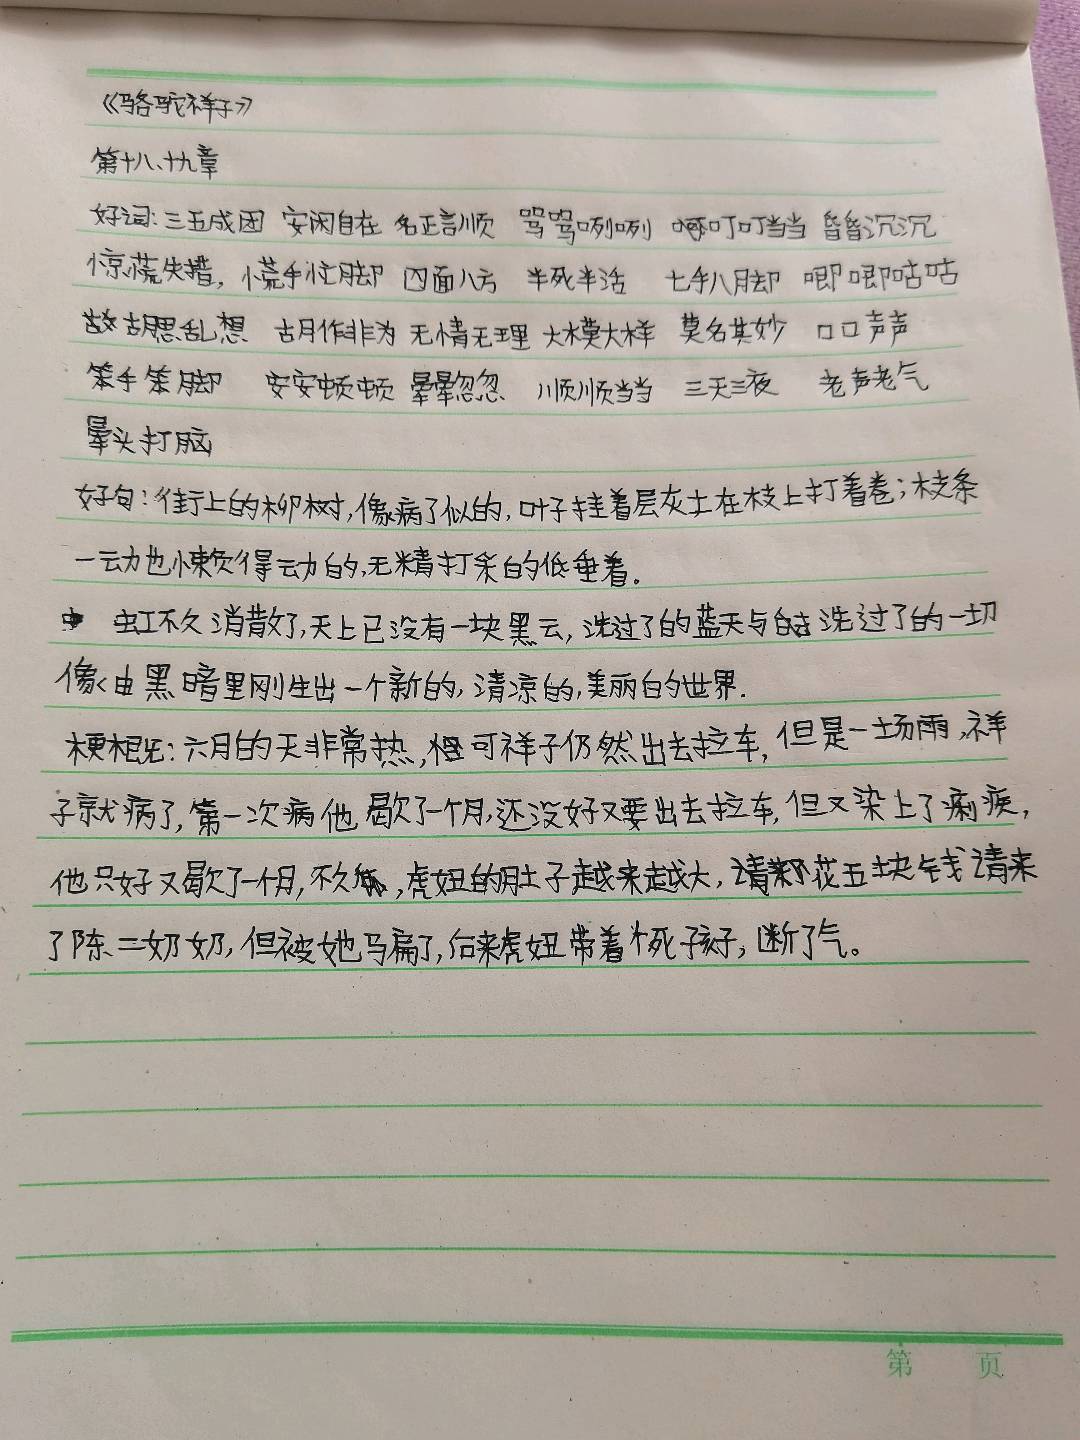 《骆驼祥子》
第十八、十九章
好词:三五成团 安闲自在 名正言顺 骂骂咧咧 叮叮当当 昏昏沉沉
惊慌失措, 慌手忙脚 四面八方 半死半活 七手八脚 唧唧咕咕
胡思乱想 胡作非为 无情无理 大模大样 莫名其妙 口口声声
笨手笨脚 安安顿顿 晕晕忽忽 顺顺当当 三天三夜 老声老气
晕头打脑
好句:街上的柳树,像病了似的,叶子挂着层灰土在枝上打着卷;枝条
一动也懒得动的,无精打采的低垂着。
虹不久消散了,天上已没有一块黑云,洗过了的蓝天与洗过了的一切
像由黑暗里刚生出一个新的,清凉的,美丽的世界.
梗概:六月的天非常热,可祥子仍然出去拉车,但是一场雨,祥
子就病了,第一次病他歇了一个月,还没好又要出去拉车,但又染上了痢疾,
他只好又歇了一个月,不久,虎妞的肚子越来越大,请花五块钱请来
了陈二奶奶,但被她骗了,后来虎妞带着个死孩子,断了气。
第 页